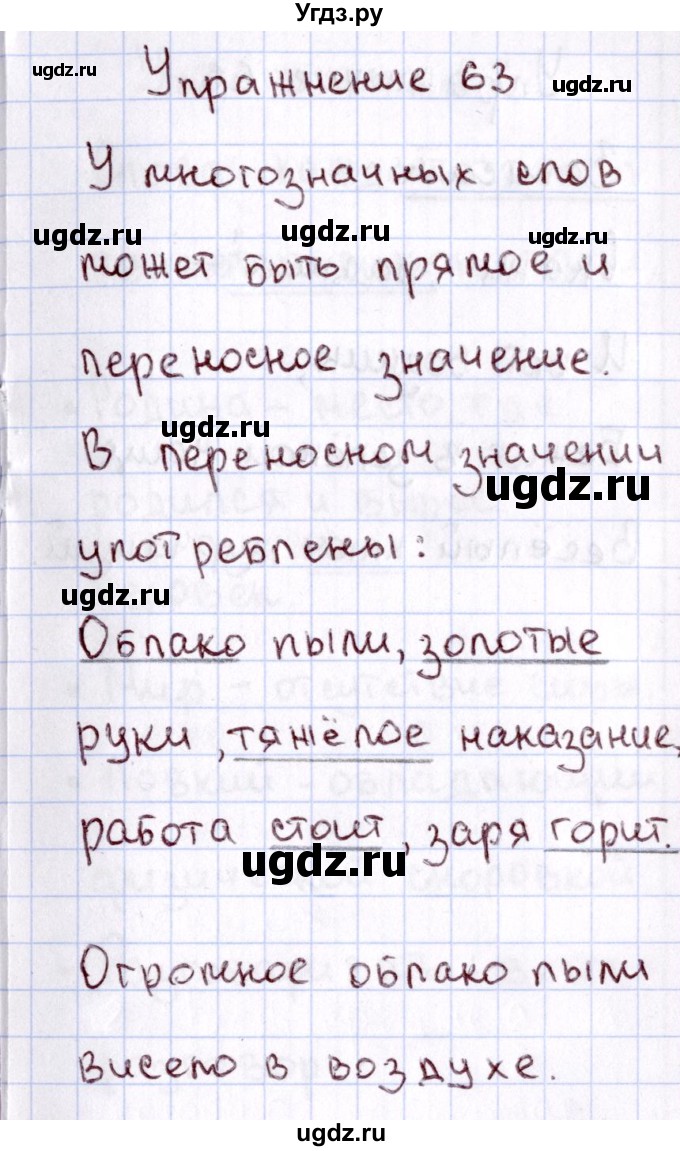 Угдз.ру
ugdz.ru
Упражнение 63
ugdz.ru
У многозначных слов
ugdz.ru
ugdz.ru
ugdz.ru
может быть прямое и
переносное значение.
ugdz.ru
В переносном значении
ugdz.ru
употреблены:
ugdz.ru
Облако пыли, золотые
руки, тяжёлое наказание,
работа стоит, заря горит.
ugdz.ru
Огромное облако пыли
висело в воздухе.
ugdz.ru